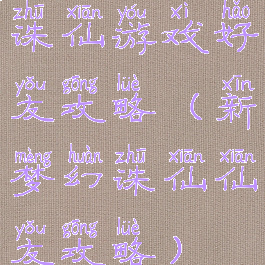 zhū xiān yóu xì hǎo
诛仙游戏好
yǒu gōng lüè xīn
友攻略（新
mèng huàn zhū xiān xiān
梦幻诛仙仙
yǒu gōng lüè
友攻略）